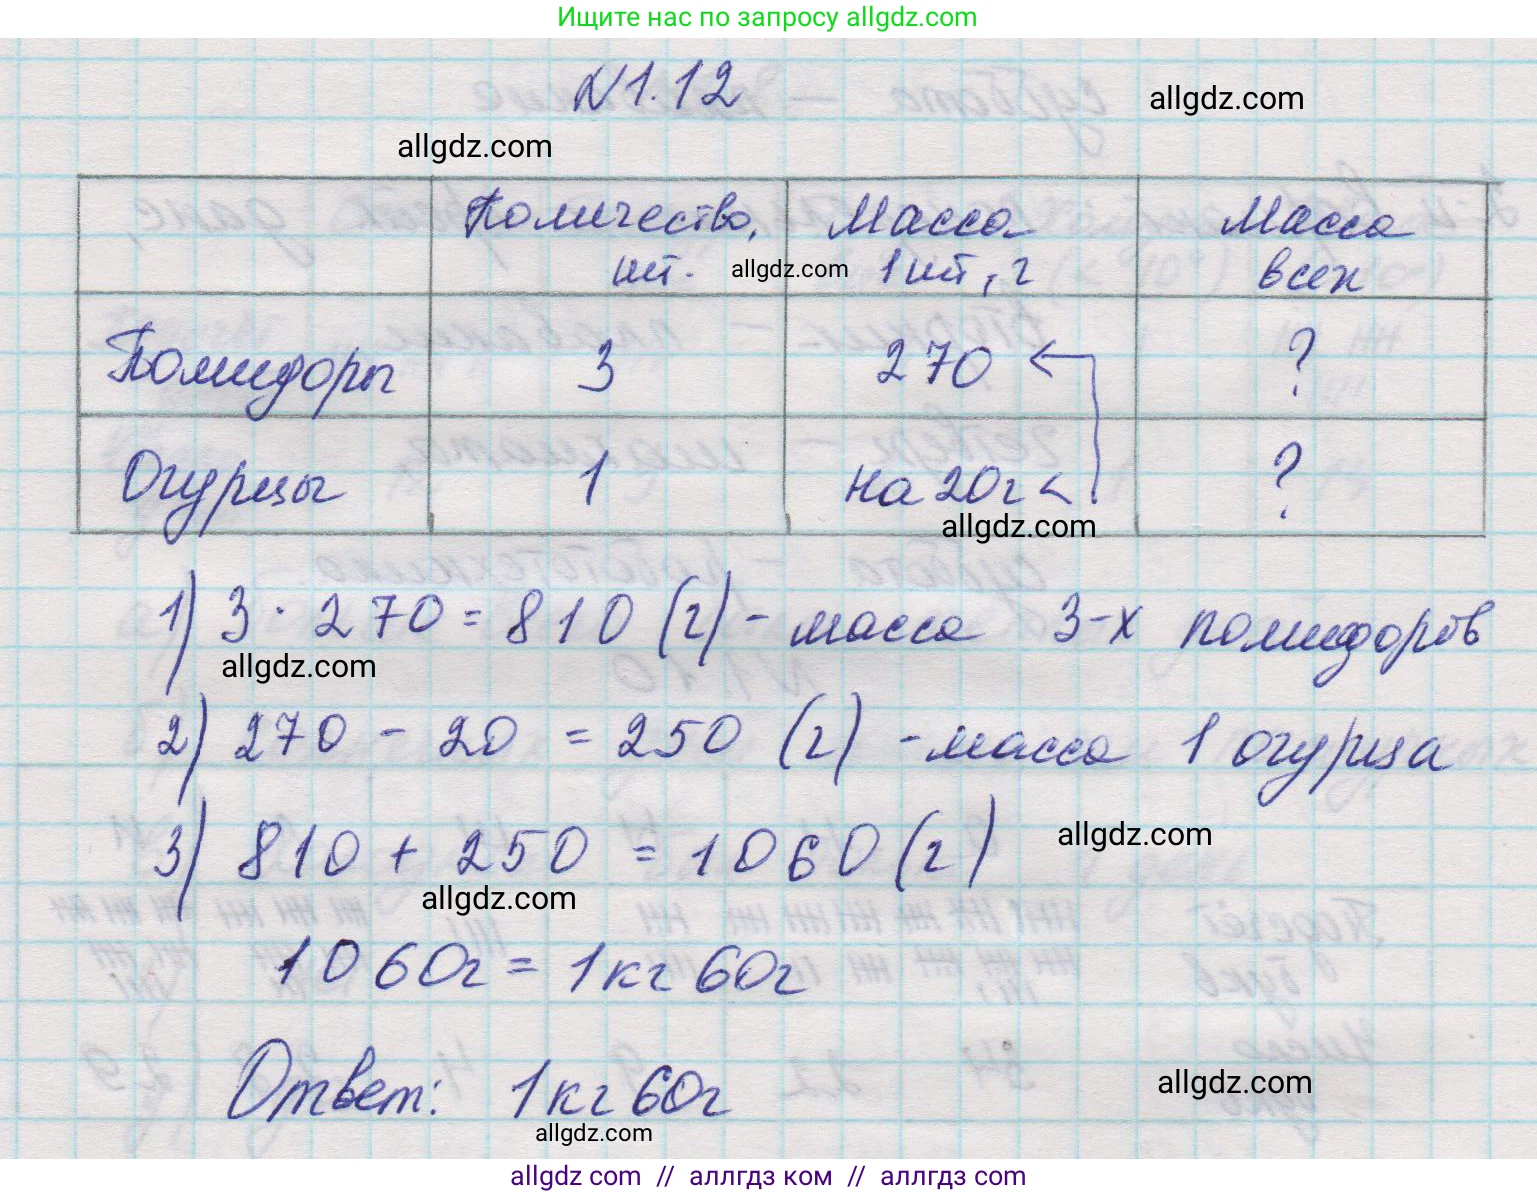 Ищите нас по запросу allgdz.com
N1.12
allgdz.com
allgdz.com
Количество, шт. Масса 1 шт, г Масса всех
allgdz.com
Помидоры 3 270 ?
Огурцы 1 на 20г < ?
allgdz.com
1) 3 · 270 = 810 (г) - масса 3-х помидоров
allgdz.com
2) 270 - 20 = 250 (г) - масса 1 огурца
3) 810 + 250 = 1060 (г)
allgdz.com
allgdz.com
1060г = 1кг 60г
Ответ: 1кг 60г
allgdz.com
allgdz.com
allgdz com // аллгдз ком // аллгдз com